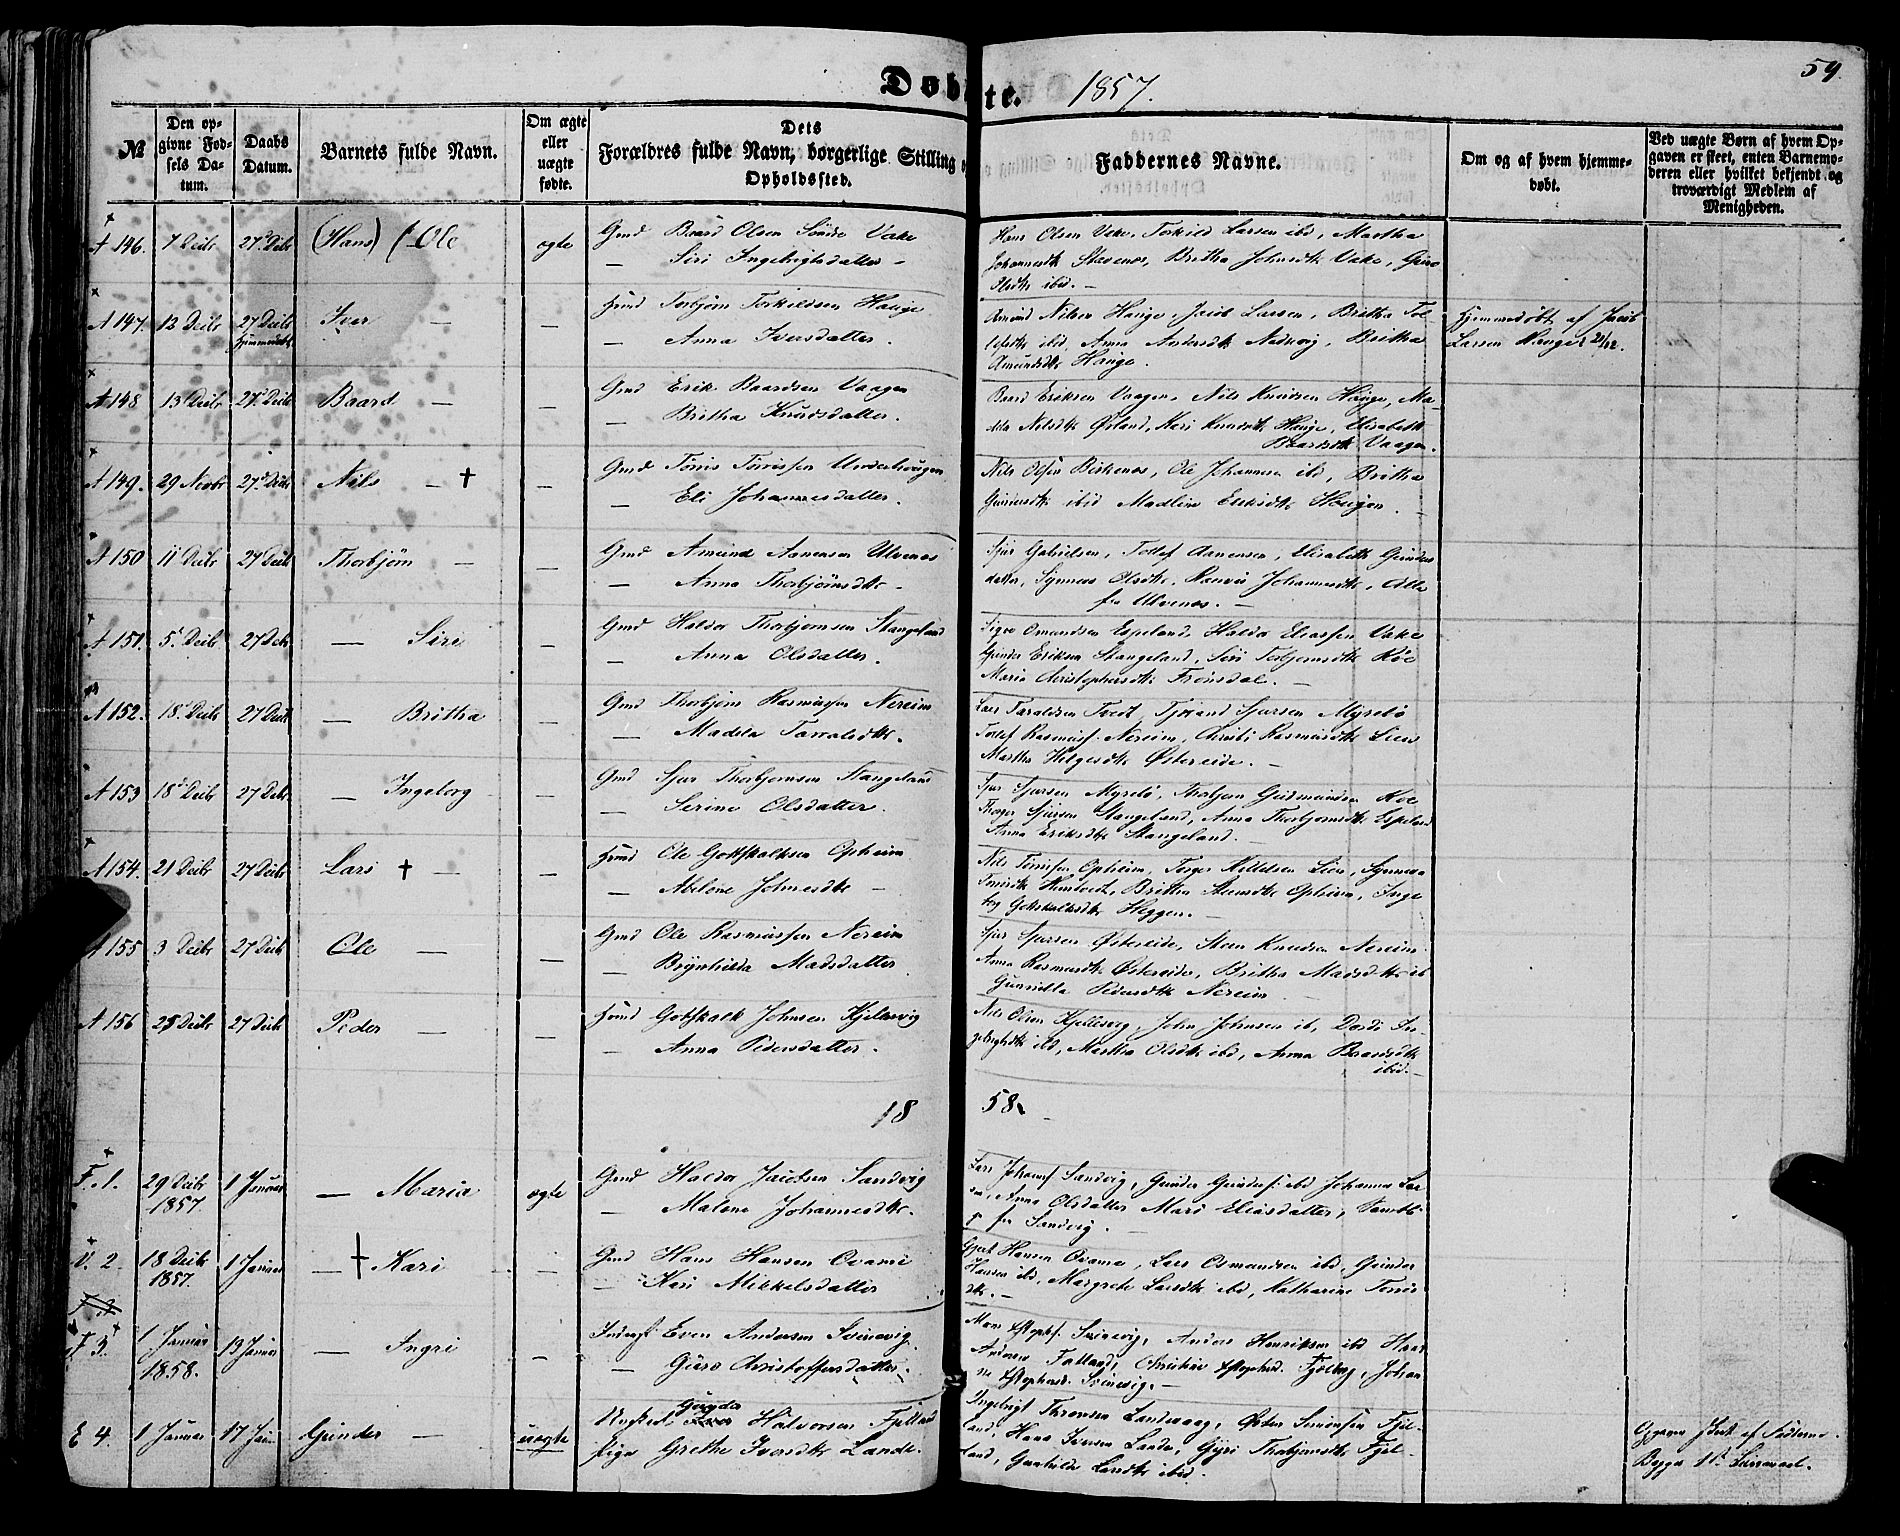 Døbte. 1857.
54.
№
Den opgivne Fødsels Datum.
Daabs Datum.
Barnets fulde Navn.
Om ægte eller uægte fødte.
Dets Forældres fulde Navn, borgerlige Stilling Opholdssted.
Faddernes Navne.
Om og af hvem hjemmedøbt.
Ved uægte Børn af hvem Opgaven er skeet, enten Barnemoderen eller hvilket bekjendt og troværdigt Medlem af Menigheden.
A 146. 7 Decbr 27 Decbr (Hans) (-Ole ægte Gmd Baard Olsen Søndre Vake
— Siri Ingebrigtsdatter -
Hans Olsen Vake, Torkild Larsen ibd, Martha
Johannesdtr Stavenes, Britha Johnsdtr Vake,
Olsdtr ibid. -
A 147. 12 Decbr 27 Decbr Iver — — Huusmd Torbjørn Torkildsen Hauge
hjemmedøbt
— Anna Iversdatter.
Amund Nilsen Hauge, Jacob Larsen, Britha
ibid, Anna Andersdtr Nedrevig, Britha
Amundsdtr Hauge.
Hjemmedøbt af Jacob
Larsen Hauge 21/12.
A 148 13 Decbr 27 Decbr Baard — — Gmd Erik Baardsen Vaagen
— Britha Knudsdatter.
Baard Eriksen Vaagen, Nils Knudsen Hauge, Ma-
Nilsdtr Øsland, Kari Knudsdtr Hauge, Elisabeth
Baardsdtr Vaagen.
A 149. 29 Novbr 27 Decbr Nils — † — Gmd Tørris Tørrissen Underhougen
— Eli Johannesdatter.
Nils Olsen Birkenes, Ole Johannesen ibd, Britha
Gundersdtr ibid Madline Eriksdtr Hougen.
A 150 11 Decbr 27 Decbr Thorbjørn — — Gmd Amund Aanensen Ulvenes
— Anna Thorbjørnsdtr -
Sjur Gabrielsen, Tollef Aanensen, Elisabeth Gunders
datter, Synneva Olsdtr, Johannesdtr, Alle
fra Ulvenes. -
A 151. 5 Decbr 27 Decbr — Siri — Gmd Haldor Thorbjørnsen Stangeland
— Anna Olsdatter.
Sigve Omundsen Espeland, Haldor Eliassen Vake
Gunder Eriksen Stangeland, Siri Torbjørnsdtr Røe
Maria Christophersdtr Frønsdal. -
A 152. 18 Decbr 27 Decbr — Britha — Gmd Thorbjørn Rasmussen Nereim
— Madela Taraldsdtr.
Lars Taraldsen Tvedt, Tjerand Sjursen Myrebø
Tollef Rasmuss. Nereim, Christi Rasmusdtr Lien
Martha Helgesdtr Østereide. -
A 153 18 Decbr 27 Decbr — Ingeborg — Gmd Sjur Thorbjørnsen Stangeland
— Serine Olsdatter.
Sjur Sjursen Myrebø, Thorbjørn Gudmundsen Røe
Sjursen Stangeland, Anna Thorbjørnsdtr Espeland
Anna Eriksdtr Stangeland.
A 154. 21 Decbr 27 Decbr Lars † — — Huusmd Ole Gotskalksen Opheim
— Abelone Johnsdtr -
Nils Tørrissen Opheim, Torger Lien, Synneva
Tørrisdtr, Britha Opheim, Inge
borg Gotskalksdtr Heggen. -
A 155 3 Decbr 27 Decbr Ole — — Gmd Ole Rasmussen Nereim
— Brynhilda Madsdatter
Sjur Sjursen Østereide, Sten Knudsen Nereim
Anna Rasmusdtr Østereide, Britha Madsdtr ib
Gunnilla Pedersdtr Nereim
A 156 25 Decbr 27 Decbr Peder — — Huusmd Gotskalk Johnsen Kjellesvig
— Anna Pedersdatter.
Nils Olsen Kjellesvig, John Johnsen ib, Dordi In-
gebrigtsdtr ibd, Martha Olsdtr ibd, Anna Baardsdtr
ibid. -
1858.
F. 1. 29 Decbr 1857. 1 Januar — Maria ægte Gmd Haldor Jacobsen Sandvig
— Malene Johannesdtr.
Lars Johannes. Sandvig, Gunder Gunders. ibd Johannes Lar
sen, Anna Olsdatter Mari Eliasdatter, Samtli
ge fra Sandvig.
V. 2. 18 Decbr 1857. 1 Januar — † Kari — Gmd Hans Hansen Qvame
— Kari Mikkelsdatter
Gjert Hansen Qvame, Lars Osmundsen ibd, Gunder
Hansen ibd, Margrete Larsdtr ibd, Katharine Tørris
dtr. -
F. 3
F 3. 1 Januar 1858. 13 Januar — Ingri — Inderst Even Andersen Svinevig
— Gurø Christoffersdatter.
Svinevig, Anders Henriksen ibd Hans
Andersen Fatland, Christine Fjelberg, Johan
ne Svinevig. -
E 4. 1 Januar 17 Januar Gunder — uægte Ungkarl Gunder Halvorsen Fjelland
Pige Grethe Ivarsdtr Lande.
Ingebrigt Thronsen Landevaag, Østen Simonsen Fjel-
land, Hans Iversen Lande, Gyri Thorbjørnsdtr Fjel-
land, Gunhilde Larsdtr ibid.
Opgaven skeet af Fæderne